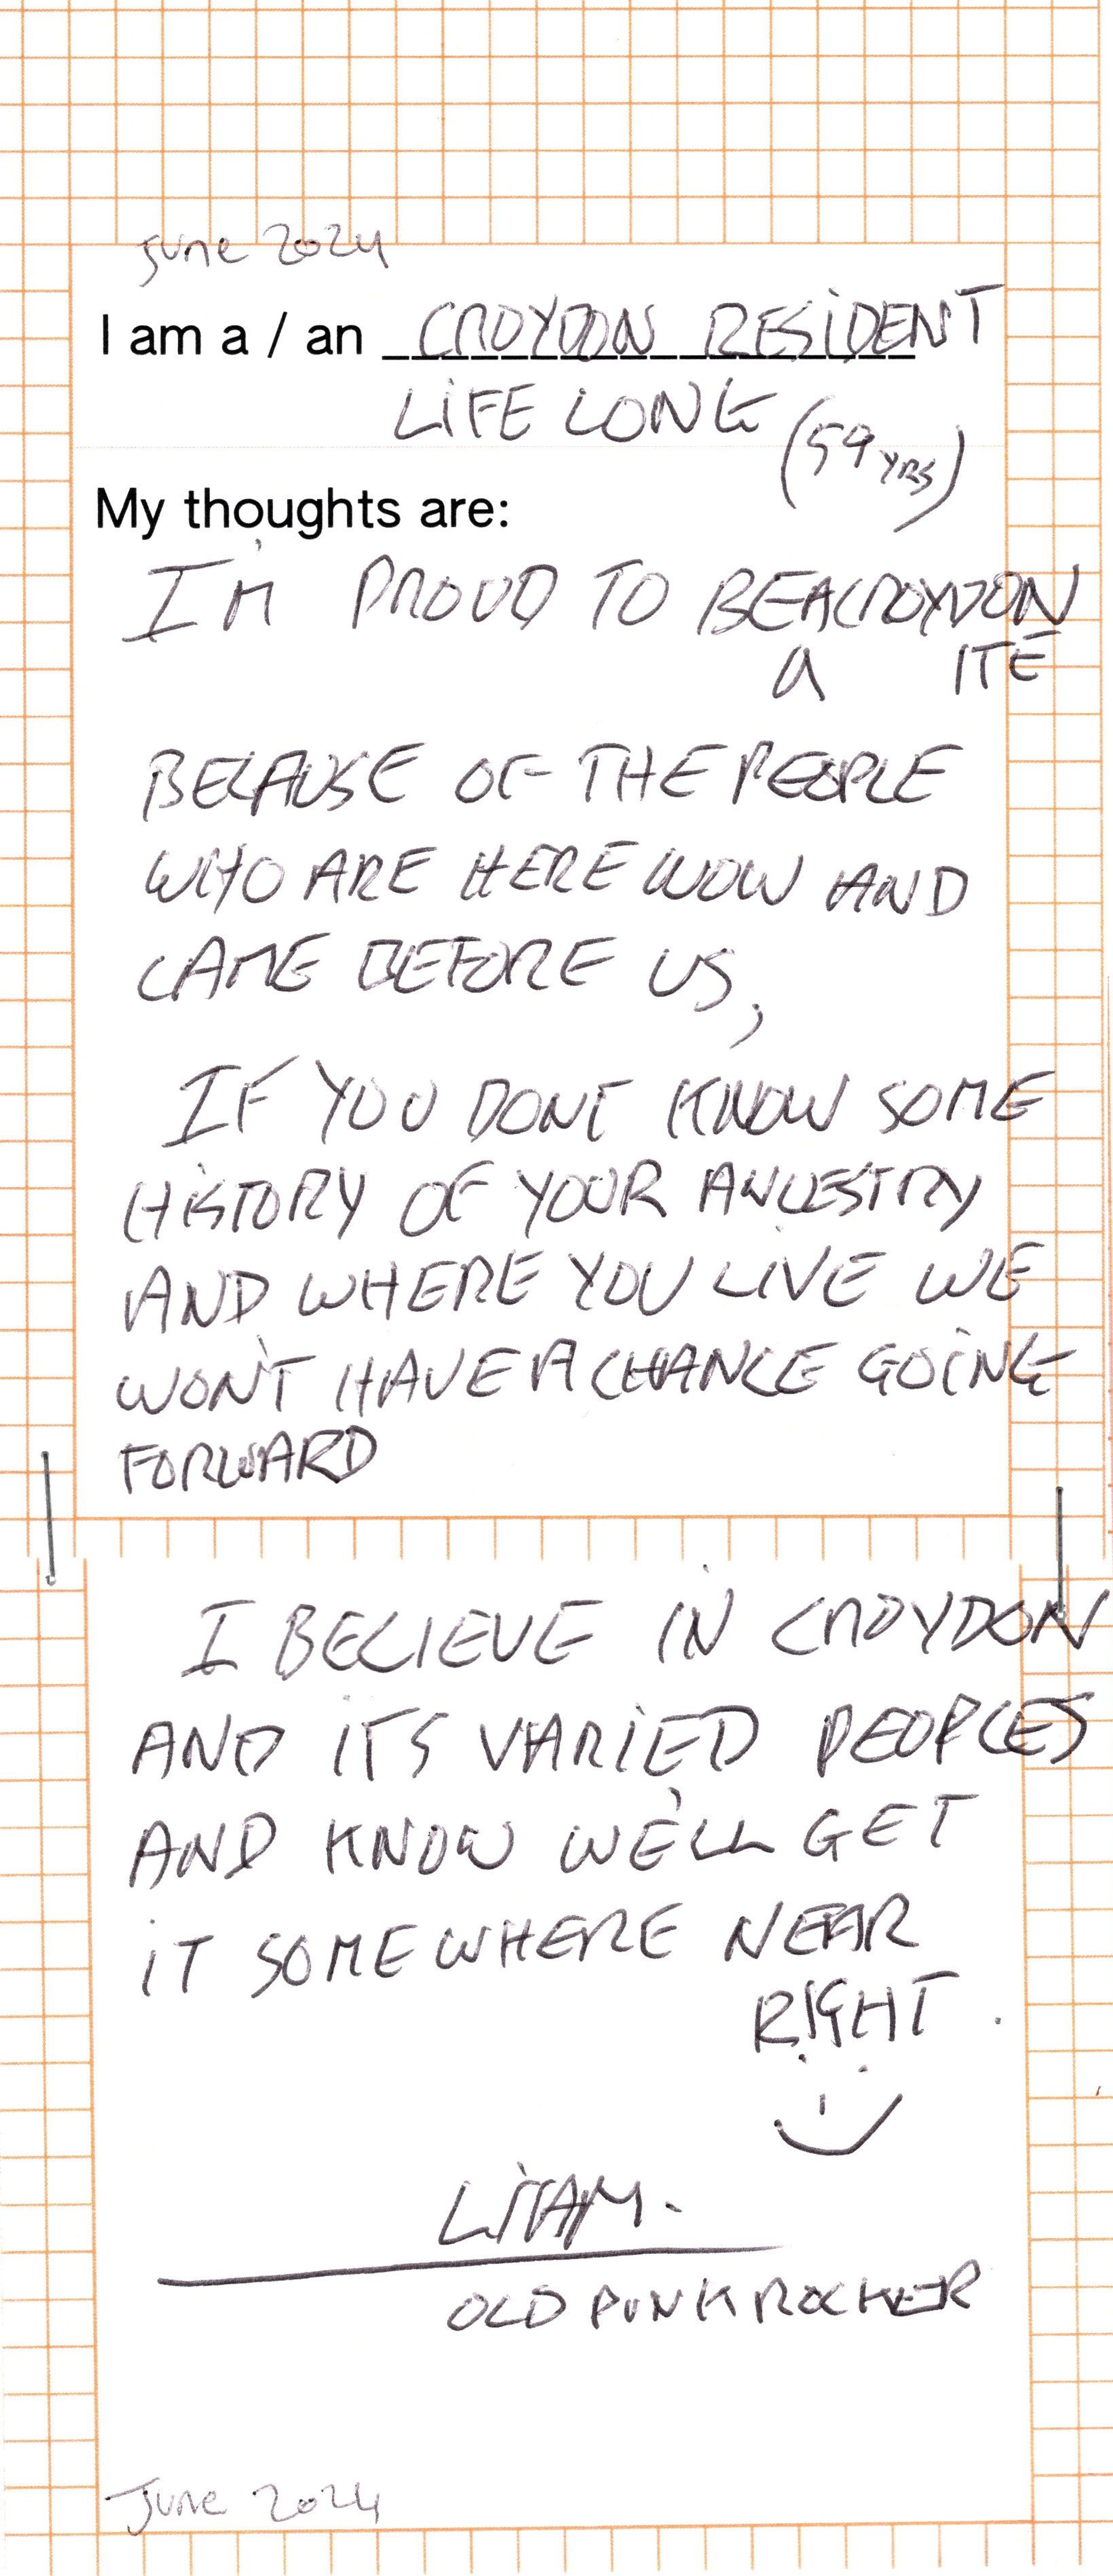 June 2024
I am a / an CROYDON RESIDENT
LIFE LONG (59 YRS)
My thoughts are:
I'M PROUD TO BE A CROYDON
a ITE
BECAUSE OF THE PEOPLE
WHO ARE HERE NOW AND
CAME BEFORE US,
IF YOU DONT KNOW SOME
HISTORY OF YOUR ANCESTRY
AND WHERE YOU LIVE WE
WON'T HAVE A CHANCE GOING
FORWARD
I BELIEVE IN CROYDON
AND ITS VARIED PEOPLES
AND KNOW WE'LL GET
IT SOMEWHERE NEAR
RIGHT.
LIAM.
OLD PUNK ROCKER
June 2024